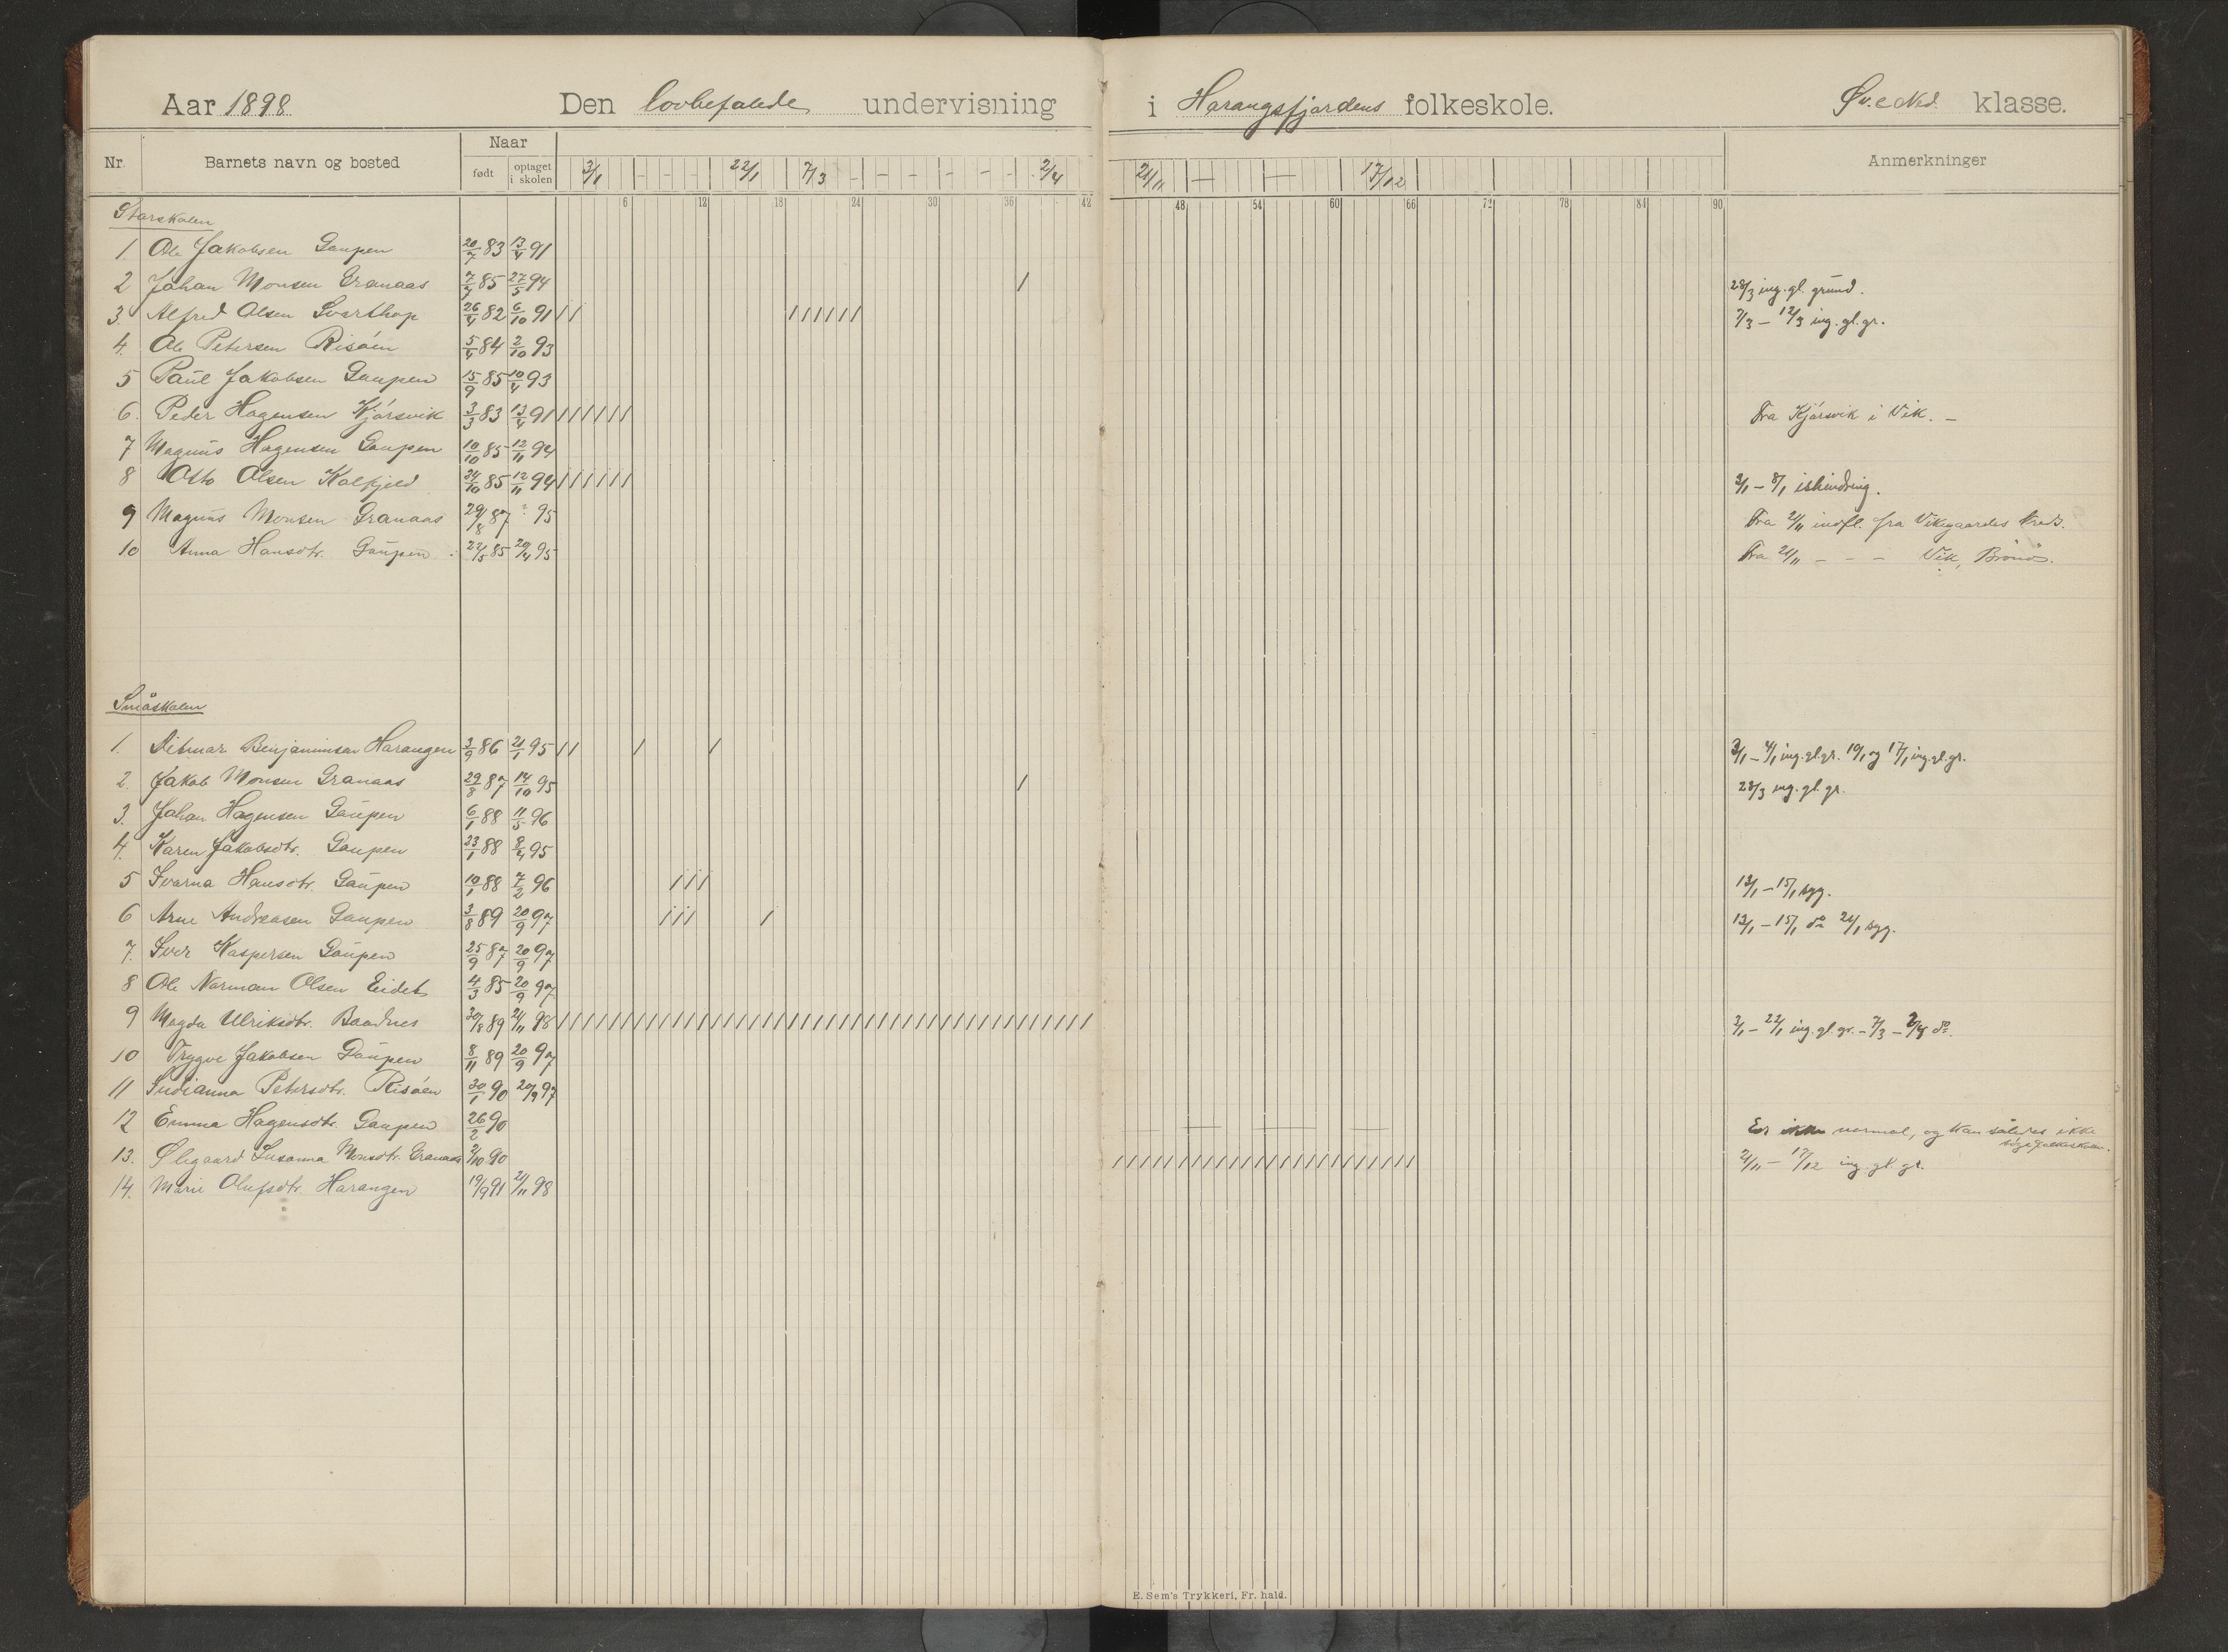 Aar 1898 Den lovbefalede undervisning i Harangsfjordens folkeskole. Øv. e Ned. klasse.
Nr. Barnets navn og bosted Naar født optaget i skolen 3/1 - - - 22/1 7/3 - - - - - - 2/4 21/11 — — 17/12 Anmerkninger
6 12 18 24 30 36 42 48 54 60 66 72 78 84 90
Storskolen
1 Ole Jakobsen Gaupen 20/7 83 13/4 91
2 Johan Monsen Granaas 7/7 85 27/5 94 / 28/3 ing. gl. grund.
3. Alfred Olsen Svarthop 26/4 82 6/10 91 // ////// 7/3 - 12/3 ing. gl. gr.
4. Ole Petersen Risöen 5/4 84 2/10 93
5 Paul Jakobsen Gaupen 15/9 85 10/4 93
6. Peder Hagensen Kjörsvik 3/3 83 13/4 91 ////// Fra Kjörsvik i Vik. -
7 Magnus Hagensen Gaupen 10/10 85 12/11 94
8 Otto Olsen Kalfjeld 24/10 85 12/11 94 ////// 3/1 - 8/1 ishindring.
9 Magnus Monsen Granaas 29/8 87 " 95 Fra 21/11 indfl. fra Vikegaardes Kreds.
10 Anna Hansdtr. Gaupen 22/5 85 20/4 95 Fra 21/11 - - - Vik, Brönö.
Småskolen
1. Ditmar Benjaminsen Harangen 3/9 86 21/1 95 // / / 3/1 - 4/1 ing. gl. gr. 10/1 og 17/1 ing. gl. gr.
2. Jakob Monsen Granaas 29/8 87 14/10 95 / 28/3 ing. gl. gr.
3. Johan Hagensen Gaupen 6/1 88 11/5 96
4. Karen Jakobsdtr. Gaupen 23/1 88 8/4 95
5 Svarna Hansdtr. Gaupen 10/1 88 7/2 96 /// 13/1 - 15/1 syg.
6 Arne Andreasen Gaupen 3/8 89 20/9 97 /// / 13/1 - 15/1 do 21/1 syg.
7. Iver Kaspersen Gaupen 25/9 87 20/9 97
8 Ole Norman Olsen Eidet 4/3 85 20/9 97
9 Magda Ulriksdtr. Baadnes 30/8 89 21/11 98 ////////////////////////////////////////// 3/1 - 22/1 ing. gl. gr. - 7/3 - 2/4 do.
10 Trygve Jakobsen Gaupen 8/11 89 20/9 97
11 Indianna Petersdtr. Risöen 30/1 90 20/9 97
12 Emma Hagensdtr. Gaupen 26/2 90 — — — — Er ikke normal, og kan således ikke
søge folkeskolen.
13. Ølegaard Susanna Monsdtr. Granaas 2/10 90 //////////////////////// 21/11 - 17/12 ing. gl. gr.
14. Marie Olufsdtr. Harangen 19/9 91 21/11 98
E. Sem's Trykkeri, Fr. hald.